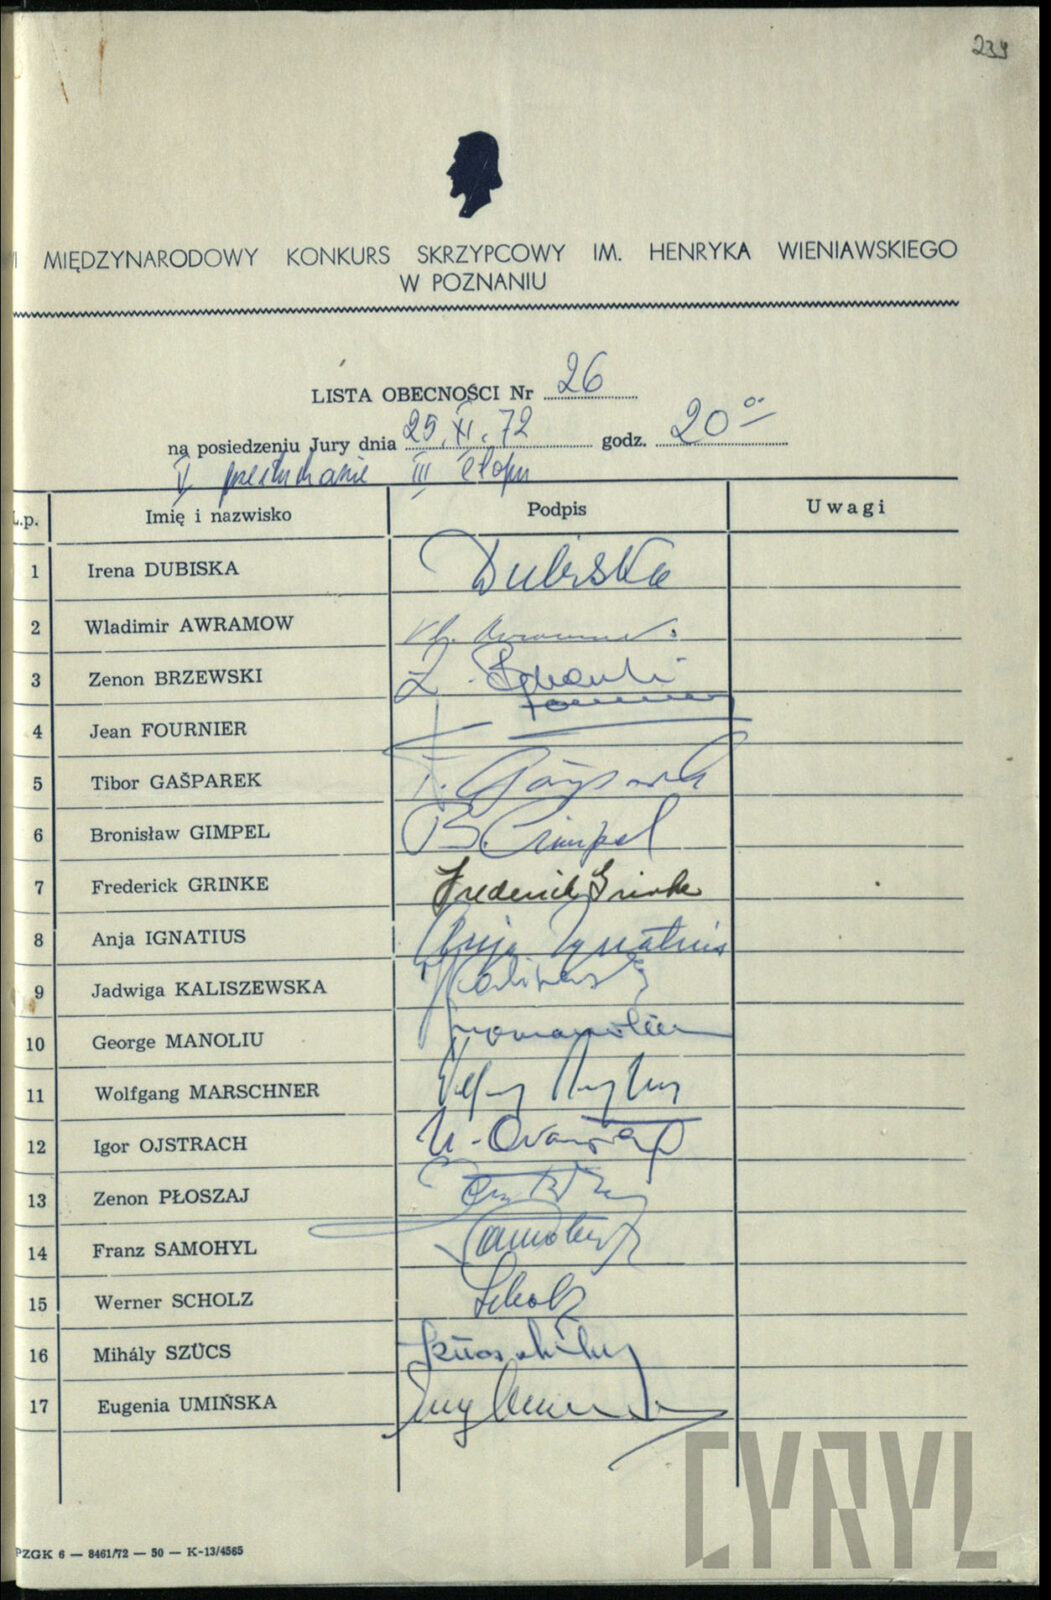 239
I MIĘDZYNARODOWY KONKURS SKRZYPCOWY IM. HENRYKA WIENIAWSKIEGO
W POZNANIU
LISTA OBECNOŚCI Nr 26
na posiedzeniu Jury dnia 25.XI.72 godz. 20⁰⁰
V przesłuchanie III etapu
L.p. Imię i nazwisko Podpis Uwagi
1 Irena DUBISKA Dubiska
2 Wladimir AWRAMOW
3 Zenon BRZEWSKI Z.
4 Jean FOURNIER
5 Tibor GAŠPAREK
6 Bronisław GIMPEL B. Gimpel
7 Frederick GRINKE Frederick Grinke
8 Anja IGNATIUS Anja Ignatius
9 Jadwiga KALISZEWSKA
10 George MANOLIU
11 Wolfgang MARSCHNER
12 Igor OJSTRACH
13 Zenon PŁOSZAJ
14 Franz SAMOHYL Samohyl
15 Werner SCHOLZ Scholz
16 Mihály SZÜCS
17 Eugenia UMIŃSKA
PZGK 6 — 8461/72 — 50 — K-13/4565
CYRYL